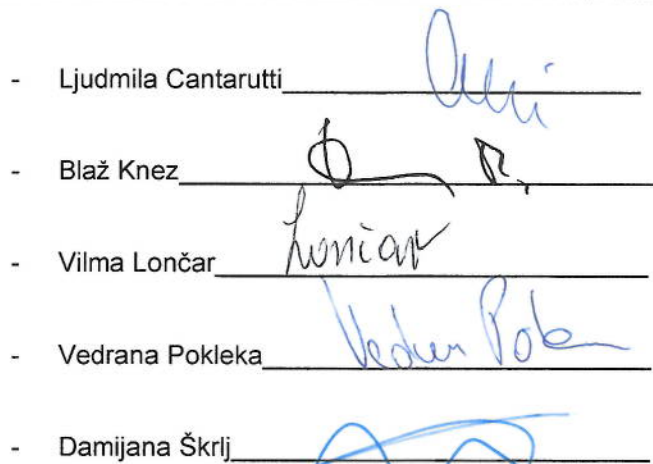 - Ljudmila Cantarutti
- Blaž Knez
- Vilma Lončar Lončar
- Vedrana Pokleka
- Damijana Škrlj